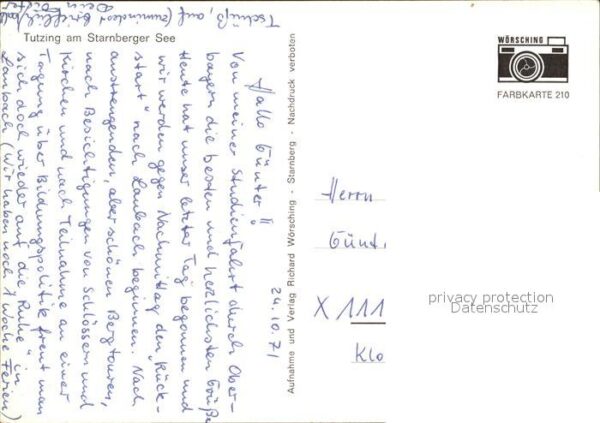 Tutzing am Starnberger See
Tschüß, auf (zumindest brieflich
Dein
24.10.71
Hallo Günter!!
Von meiner Studienfahrt durch Ober-
bayern die besten und herzlichsten Grüße
Heute hat unser letzter Tag begonnen und
wir werden gegen Nachmittag den „Rück-
start“ nach Laubach beginnen. Nach
anstrengenden, aber schönen Bergtouren,
nach Besichtigungen von Schlössern und
Kirchen und nach Teilnahme an einer
Tagung über Bildungspolitik freut man
sich doch wieder auf die „Ruhe“ in
Laubach (Wir haben noch 1 Woche Ferien)
Aufnahme und Verlag Richard Wörsching - Starnberg - Nachdruck verboten
WÖRSCHING
FARBKARTE 210
Herrn
Günt
X 111
Klo
privacy protection
Datenschutz